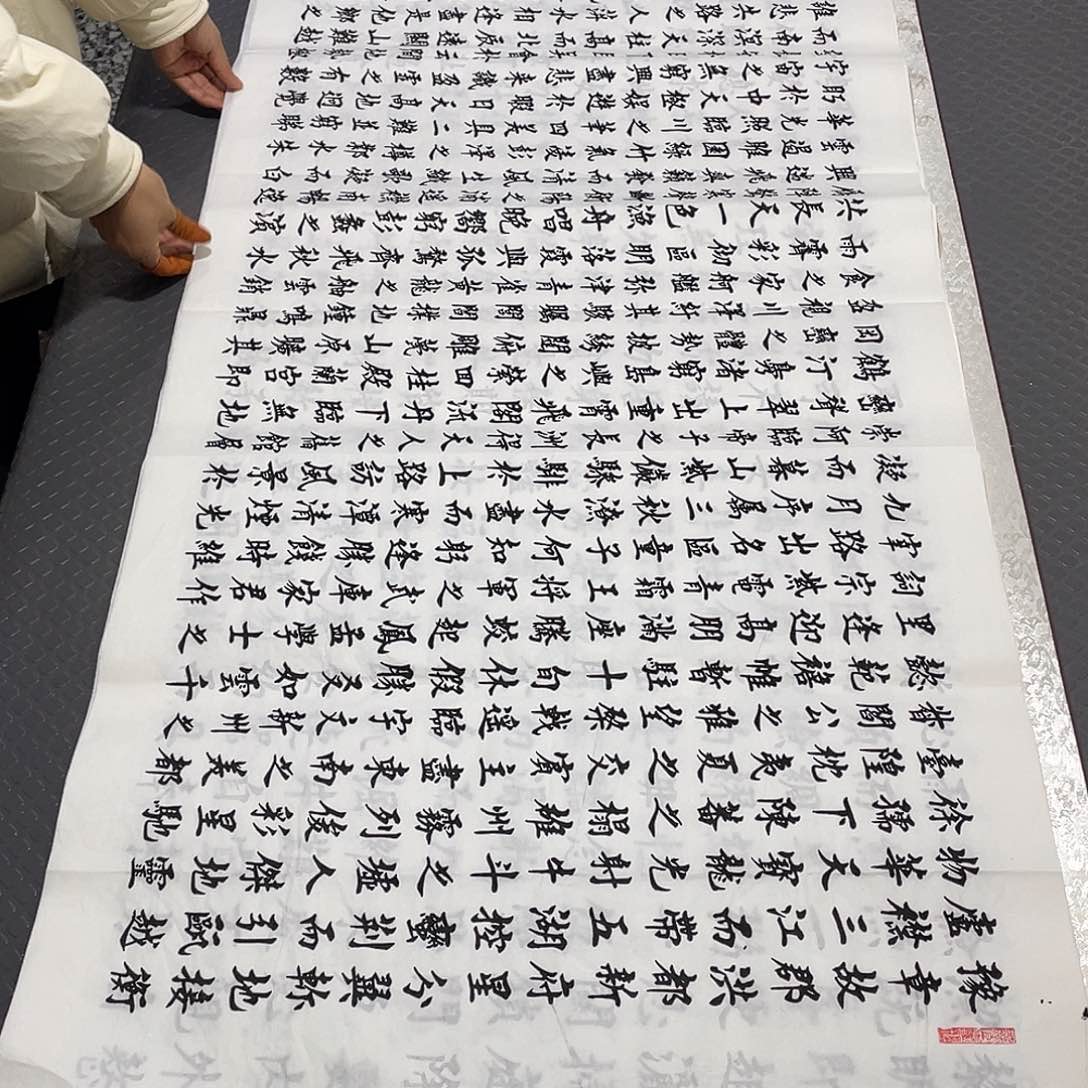 豫章故郡洪都新府星分翼軫地接衡
廬襟三江而帶五湖控蠻荊而引甌越
物華天寶龍光射牛斗之墟人傑地靈
徐孺下陳蕃之榻雄州霧列俊彩星馳
臺隍枕夷夏之交賓主盡東南之美都
督閻公之雅望棨戟遙臨宇文新州之
懿範襜帷暫駐十旬休假勝友如雲千
里逢迎高朋滿座騰蛟起鳳孟學士之
詞宗紫電青霜王將軍之武庫家君作
宰路出名區童子何知躬逢勝餞時維
九月序屬三秋潦水盡而寒潭清煙光
凝而暮山紫儼驂騑於上路訪風景於
崇阿臨帝子之長洲得天人之舊館層
巒聳翠上出重霄飛閣流丹下臨無地
鶴汀鳧渚窮島嶼之縈回桂殿蘭宮即
岡巒之體勢披繡闥俯雕甍山原曠其
盈視川澤紆其駭矚閭閻撲地鐘鳴鼎
食之家舸艦彌津青雀黃龍之舳雲銷
雨霽彩徹區明落霞與孤鶩齊飛秋水
共長天一色漁舟唱晚響窮彭蠡之濱
興遄飛爽籟發而清風生纖歌凝而白
雲遏睢園綠竹氣凌彭澤之樽鄴水朱
華光照臨川之筆四美具二難並窮睇
眄於中天極娛遊於暇日天高地迥覺
宇宙之無窮興盡悲來識盈虛之有數
而南溟深天柱高而北辰遠關山難越
悲失路之人萍水相逢盡是他鄉之